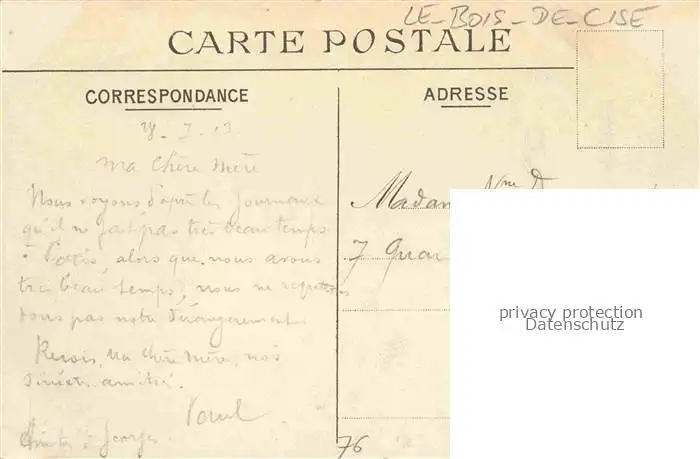 LE-BOIS-DE-CISE
CARTE POSTALE
CORRESPONDANCE
7. 13
ma Chère Mère
Nous voyons d'après les Journaux
qu'il ne fait pas très beau temps
à Paris, alors que nous avons
très beau temps, nous ne regrettons
donc pas notre dérangement.
Reçois, Ma Chère Mère, nos
sincères amitiés.
Paul
à Georges
ADRESSE
Madam
7 Quai
76
privacy protection
Datenschutz